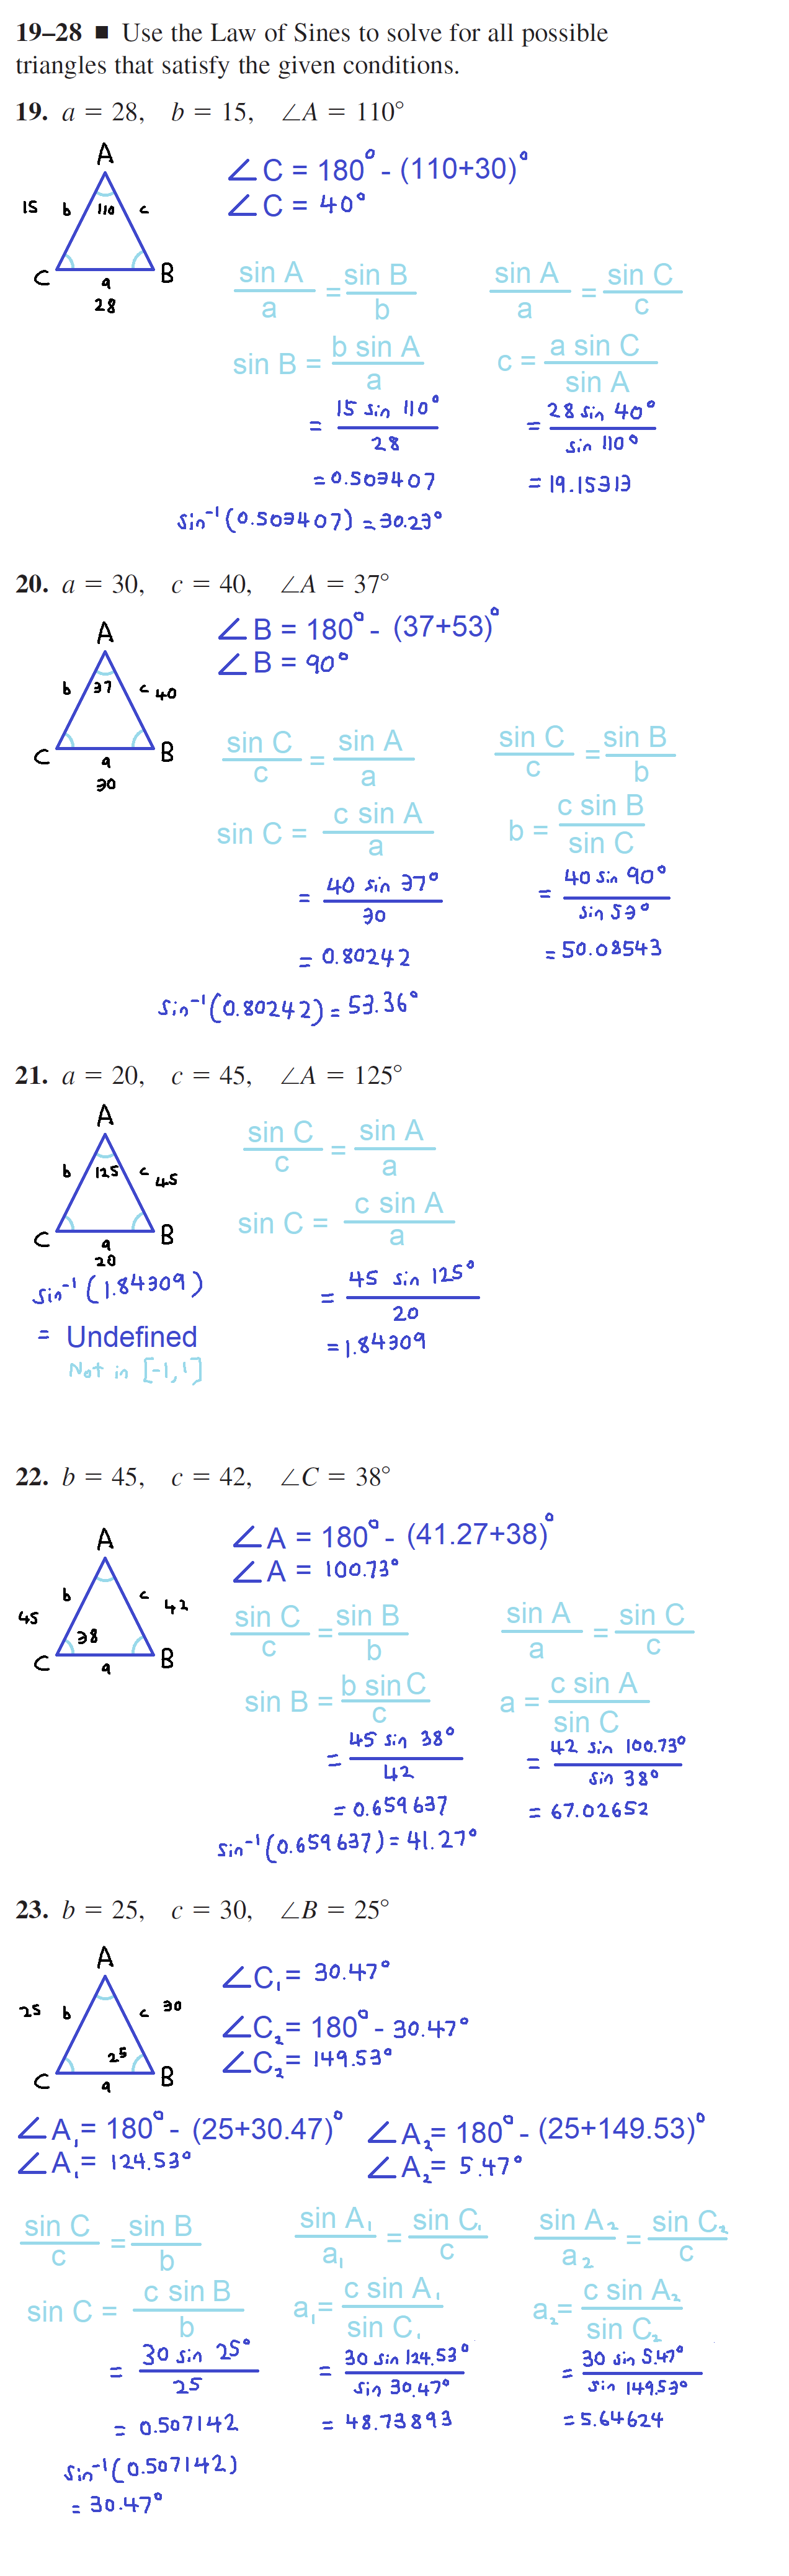 19–28 ■ Use the Law of Sines to solve for all possible
triangles that satisfy the given conditions.
19. a = 28, b = 15, ∠A = 110°
A
15 b 110 c
C B
a
28
∠C = 180° - (110+30)°
∠C = 40°
sin A / a = sin B / b
sin B = b sin A / a
= 15 sin 110° / 28
= 0.503407
sin⁻¹(0.503407) = 30.23°
sin A / a = sin C / c
c = a sin C / sin A
= 28 sin 40° / sin 110°
= 19.15313
20. a = 30, c = 40, ∠A = 37°
A
b 37 c 40
C B
a
30
∠B = 180° - (37+53)°
∠B = 90°
sin C / c = sin A / a
sin C = c sin A / a
= 40 sin 37° / 30
= 0.80242
sin⁻¹(0.80242) = 53.36°
sin C / c = sin B / b
b = c sin B / sin C
= 40 sin 90° / sin 53°
= 50.08543
21. a = 20, c = 45, ∠A = 125°
A
b 125 c 45
C B
a
20
sin C / c = sin A / a
sin C = c sin A / a
= 45 sin 125° / 20
= 1.84309
sin⁻¹(1.84309)
= Undefined
Not in [-1,1]
22. b = 45, c = 42, ∠C = 38°
A
b c 42
45
38
C B
a
∠A = 180° - (41.27+38)°
∠A = 100.73°
sin C / c = sin B / b
sin B = b sin C / c
= 45 sin 38° / 42
= 0.659637
sin⁻¹(0.659637) = 41.27°
sin A / a = sin C / c
a = c sin A / sin C
= 42 sin 100.73° / sin 38°
= 67.02652
23. b = 25, c = 30, ∠B = 25°
A
25 b c 30
25
C B
a
∠C₁ = 30.47°
∠C₂ = 180° - 30.47°
∠C₂ = 149.53°
∠A₁ = 180° - (25+30.47)°
∠A₁ = 124.53°
∠A₂ = 180° - (25+149.53)°
∠A₂ = 5.47°
sin C / c = sin B / b
sin C = c sin B / b
= 30 sin 25° / 25
= 0.507142
sin⁻¹(0.507142)
= 30.47°
sin A₁ / a₁ = sin C₁ / c
a₁ = c sin A₁ / sin C₁
= 30 sin 124.53° / sin 30.47°
= 48.73893
sin A₂ / a₂ = sin C₂ / c
a₂ = c sin A₂ / sin C₂
= 30 sin 5.47° / sin 149.53°
= 5.64624